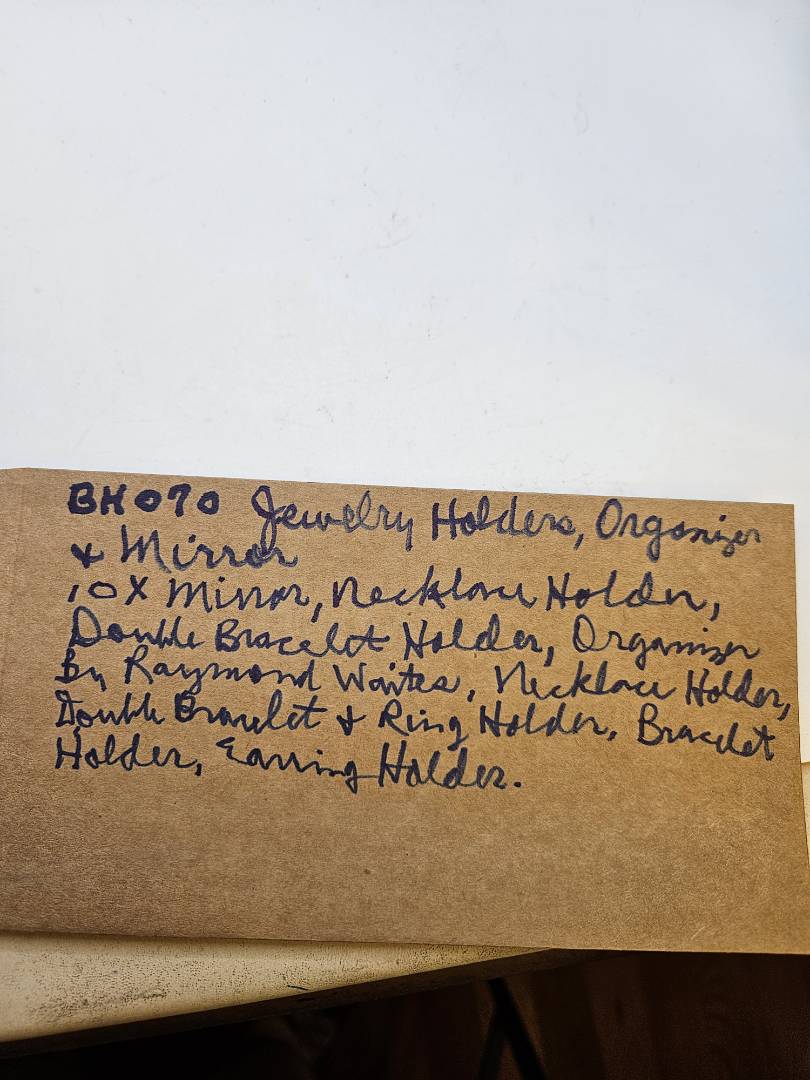 BH070 Jewelry Holders, Organizer
& Mirror
10X Mirror, Necklace Holder,
Double Bracelet Holder, Organizer
By Raymond Waites, Necklace Holder,
Double Bracelet & Ring Holder, Bracelet
Holder, Earring Holder.